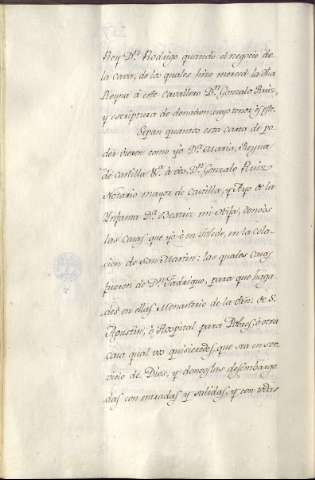 Rey Dⁿ. Rodrigo quando el negocio de
la cava, de los quales hizo merced la dha
Reyna à este cavallero Dⁿ. Gonzalo Ruiz,
y escriptura de donacion, cuyo tenor es este.
Sepan quantos esta carta de po-
der vieren como yo Dª. Maria, Reyna
de castilla &ª. à vos Dⁿ. Gonzalo Ruiz
Notario mayor de Castilla, y Ayo de la
Ynfanta Dª. Beatriz mi Hija, donoos
las casas que yo è en Toledo, en la cola-
cion de San Martin: las quales casas
fueron de Dⁿ. Fadrique, para que faga-
des en ellas Monasterio de la Orn. de S.
Agustin, ò Hospital para Pobres, ò otra
cosa qual vos quisieredes, que sea en ser-
vicio de Dios, y donoslas desembarga-
das con entradas, y salidas, y con todas